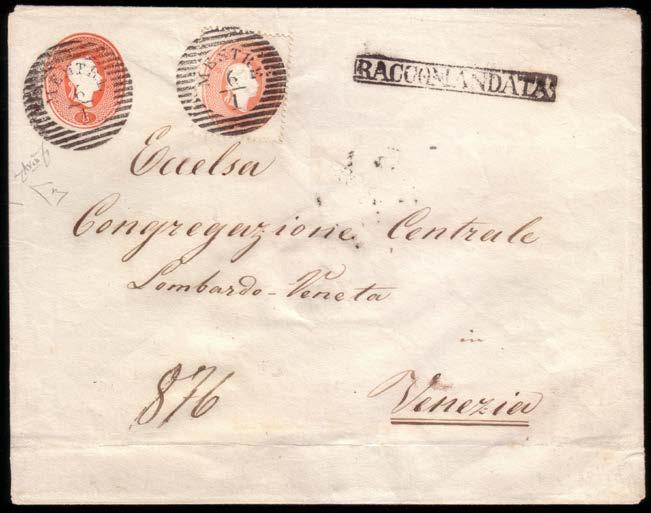 MESTRE
6/1
MESTRE
6/1
RACCOMANDATA
Eccelsa
Congregazione Centrale
Lombardo-Veneta
in
Venezia
876